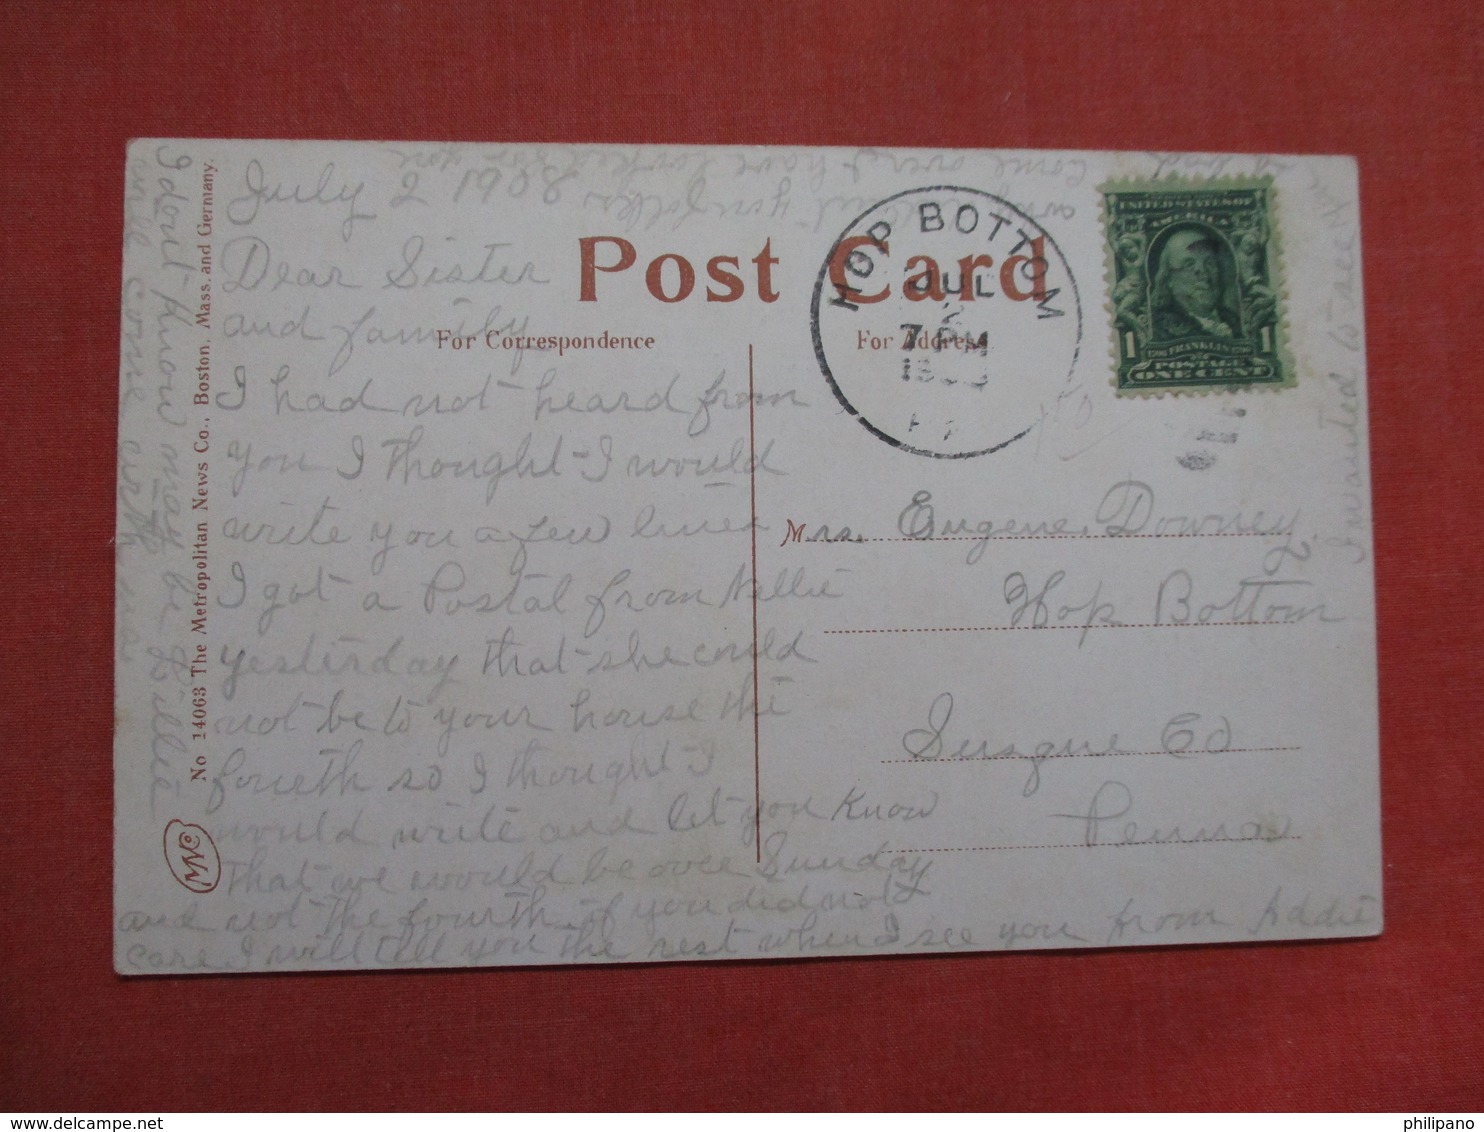 July 2 1908
Dear Sister
and family
I had not heard from
you I thought I would
write you a few lines
I got a Postal from Nellie
yesterday that she could
not be to your house the
fourth so I thought I
would write and let you know
that we would be over Sunday
and not the fourth if you did not
care I will tell you the rest when I see you from Addie
I dont know may be Willie
will come with us
I wanted to see you
so bad
come over & have looked for you
any you folks
Post Card
For Correspondence
For Address
HOP BOTTOM
JUL
2
7 PM
UNITED STATES OF
AMERICA
1
FRANKLIN
1
POSTAGE
ONE CENT
Mrs. Eugene Downey
Hop Bottom
Susque Co
Penna
No 14063 The Metropolitan News Co., Boston, Mass. and Germany.
MNCo
http://www.delcampe.net
philipano